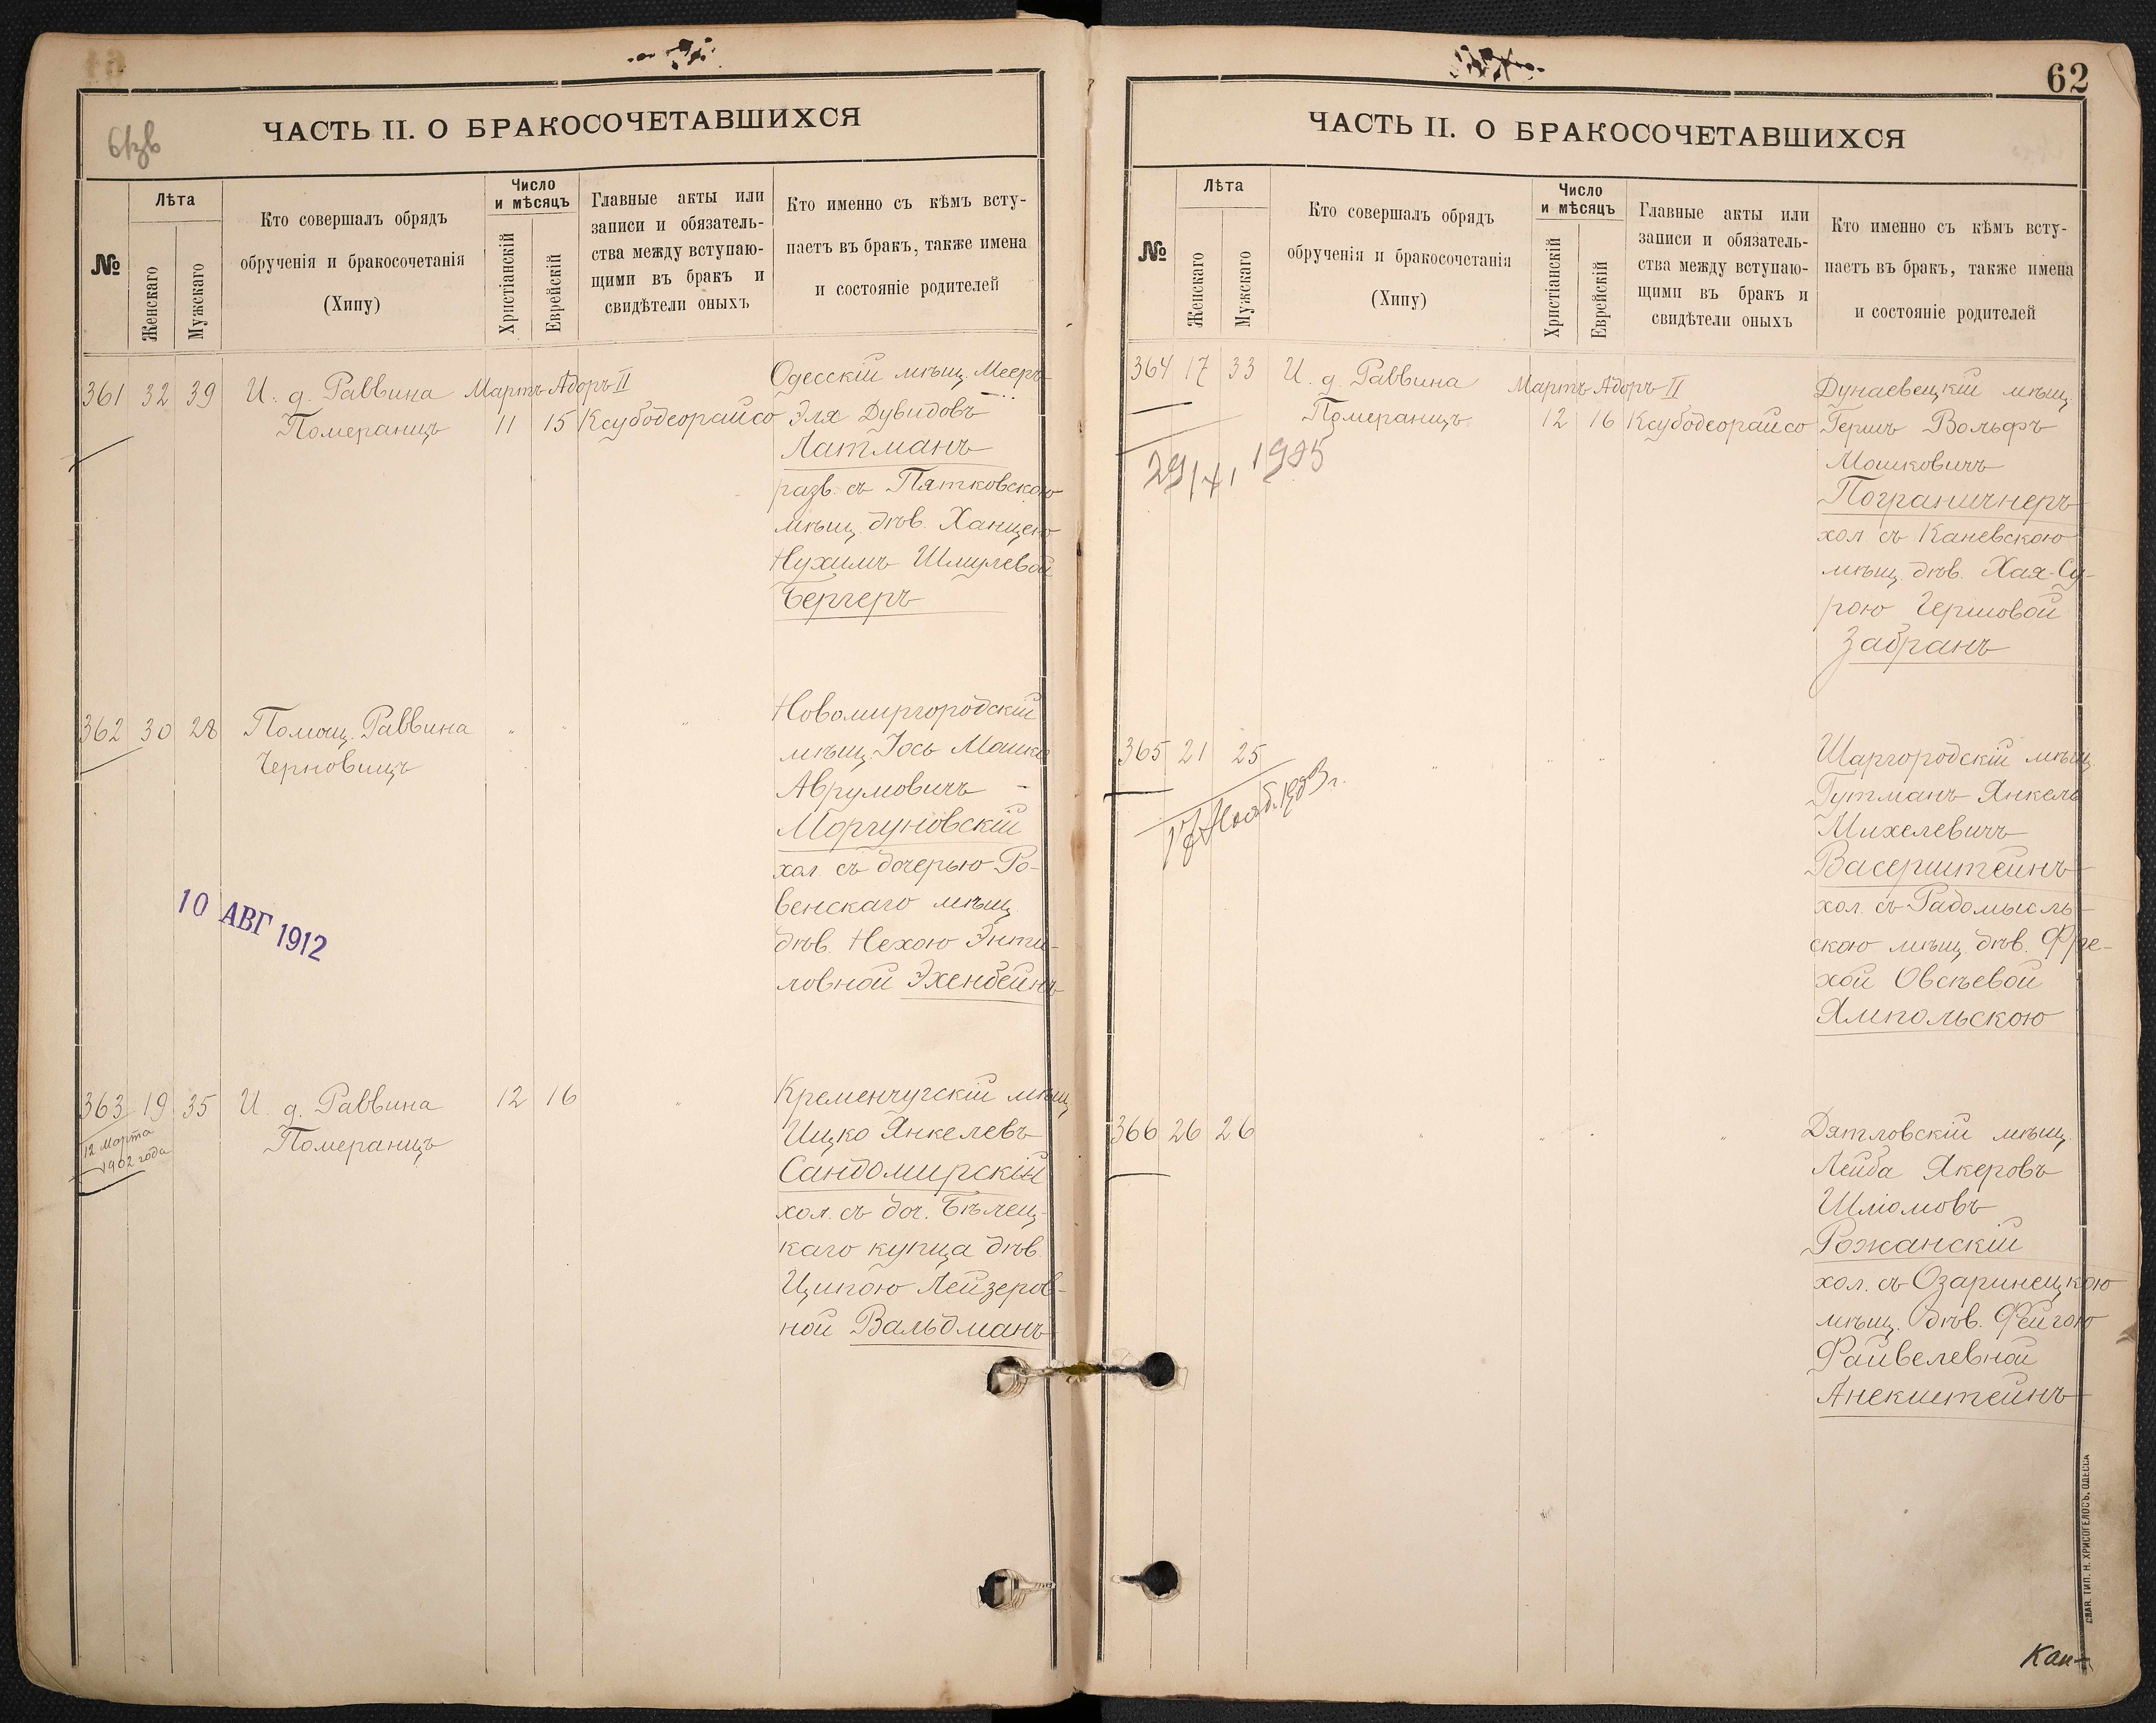 ЧАСТЬ II. О БРАКОСОЧЕТАВШИХСЯ
№
Лѣта
Женскаго
Мужскаго
Кто совершалъ обрядъ
обрученія и бракосочетанія
(Хипу)
Число
и мѣсяцъ
Христіанскій
Еврейскій
Главные акты или
записи и обязатель-
ства между вступаю-
щими въ бракъ и
свидѣтели оныхъ
Кто именно съ кѣмъ всту-
паетъ въ бракъ, также имена
и состояніе родителей
361 32 39 И. д. Раввина Мартъ Адоръ II
Померанцъ 11 15 Ксубодеорайсо
Одесскій мѣщ. Мееръ
Эля Дувидовъ
Латманъ
разв. съ Пятковскою
мѣщ. дѣв. Ханцею
Нухимъ Шмулевой
Бергеръ
362 30 28 Помощ. Раввина " " "
Черновицъ
Новомиргородскій
мѣщ. Іось Мошко
Аврумовичъ
Моргуновскій
хол. съ дочерью Ро-
венскаго мѣщ.
дѣв. Нехою Энти-
ловной Эхенбейнъ
10 АВГ 1912
363 19 35 И. д. Раввина 12 16 "
Померанцъ
12 Марта
1902 года
Кременчугскій мѣщ.
Ицко Янкелевъ
Сандомирскій
хол. съ доч. Бѣлец-
каго купца дѣв.
Ципою Лейзеров-
ной Вальдманъ
62
ЧАСТЬ II. О БРАКОСОЧЕТАВШИХСЯ
№
Лѣта
Женскаго
Мужскаго
Кто совершалъ обрядъ
обрученія и бракосочетанія
(Хипу)
Число
и мѣсяцъ
Христіанскій
Еврейскій
Главные акты или
записи и обязатель-
ства между вступаю-
щими въ бракъ и
свидѣтели оныхъ
Кто именно съ кѣмъ всту-
паетъ въ бракъ, также имена
и состояніе родителей
364 17 33 И. д. Раввина Мартъ Адоръ II
Померанцъ 12 16 Ксубодеорайсо
Дунаевецкій мѣщ.
Гершъ Вольфъ
Мошковичъ
Пограничнеръ
хол. съ Каневскою
мѣщ. дѣв. Хая-Су-
рою Гершовой
Забранъ
365 21 25 " " "
Шаргородскій мѣщ.
Гутманъ Янкель
Михелевичъ
Васерштейнъ
хол. съ Радомысль-
скою мѣщ. дѣв. Фре-
хой Овсѣевой
Ямпольскою
366 26 26 " " " "
Дятловскій мѣщ.
Лейба Якеровъ
Шліомовъ
Рожанскій
хол. съ Озаринецкою
мѣщ. дѣв. Фейгою
Файвелевной
Анекштейнъ
СЛАВ. ТИП. Н. ХРИСОГЕЛОСЪ, ОДЕССА